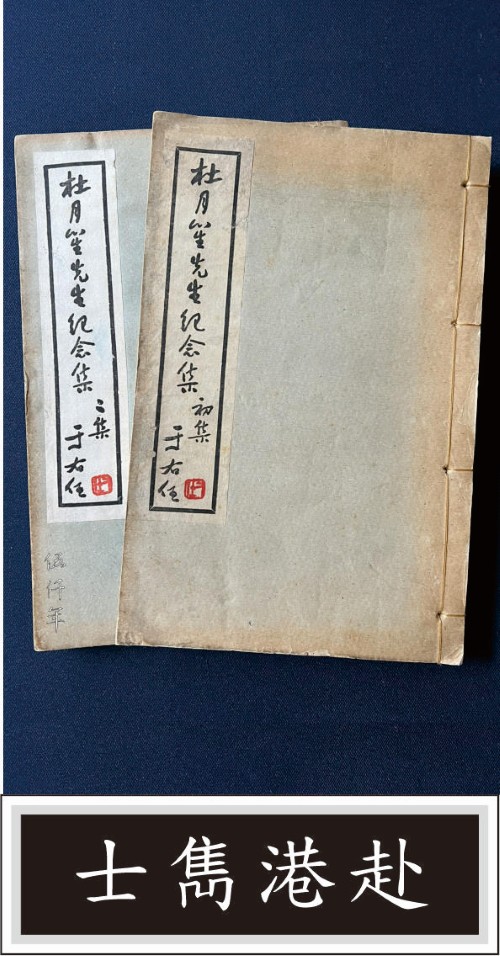 杜月笙先生纪念集
初集
于右任
杜月笙先生纪念集
二集
于右任
赴港雋士